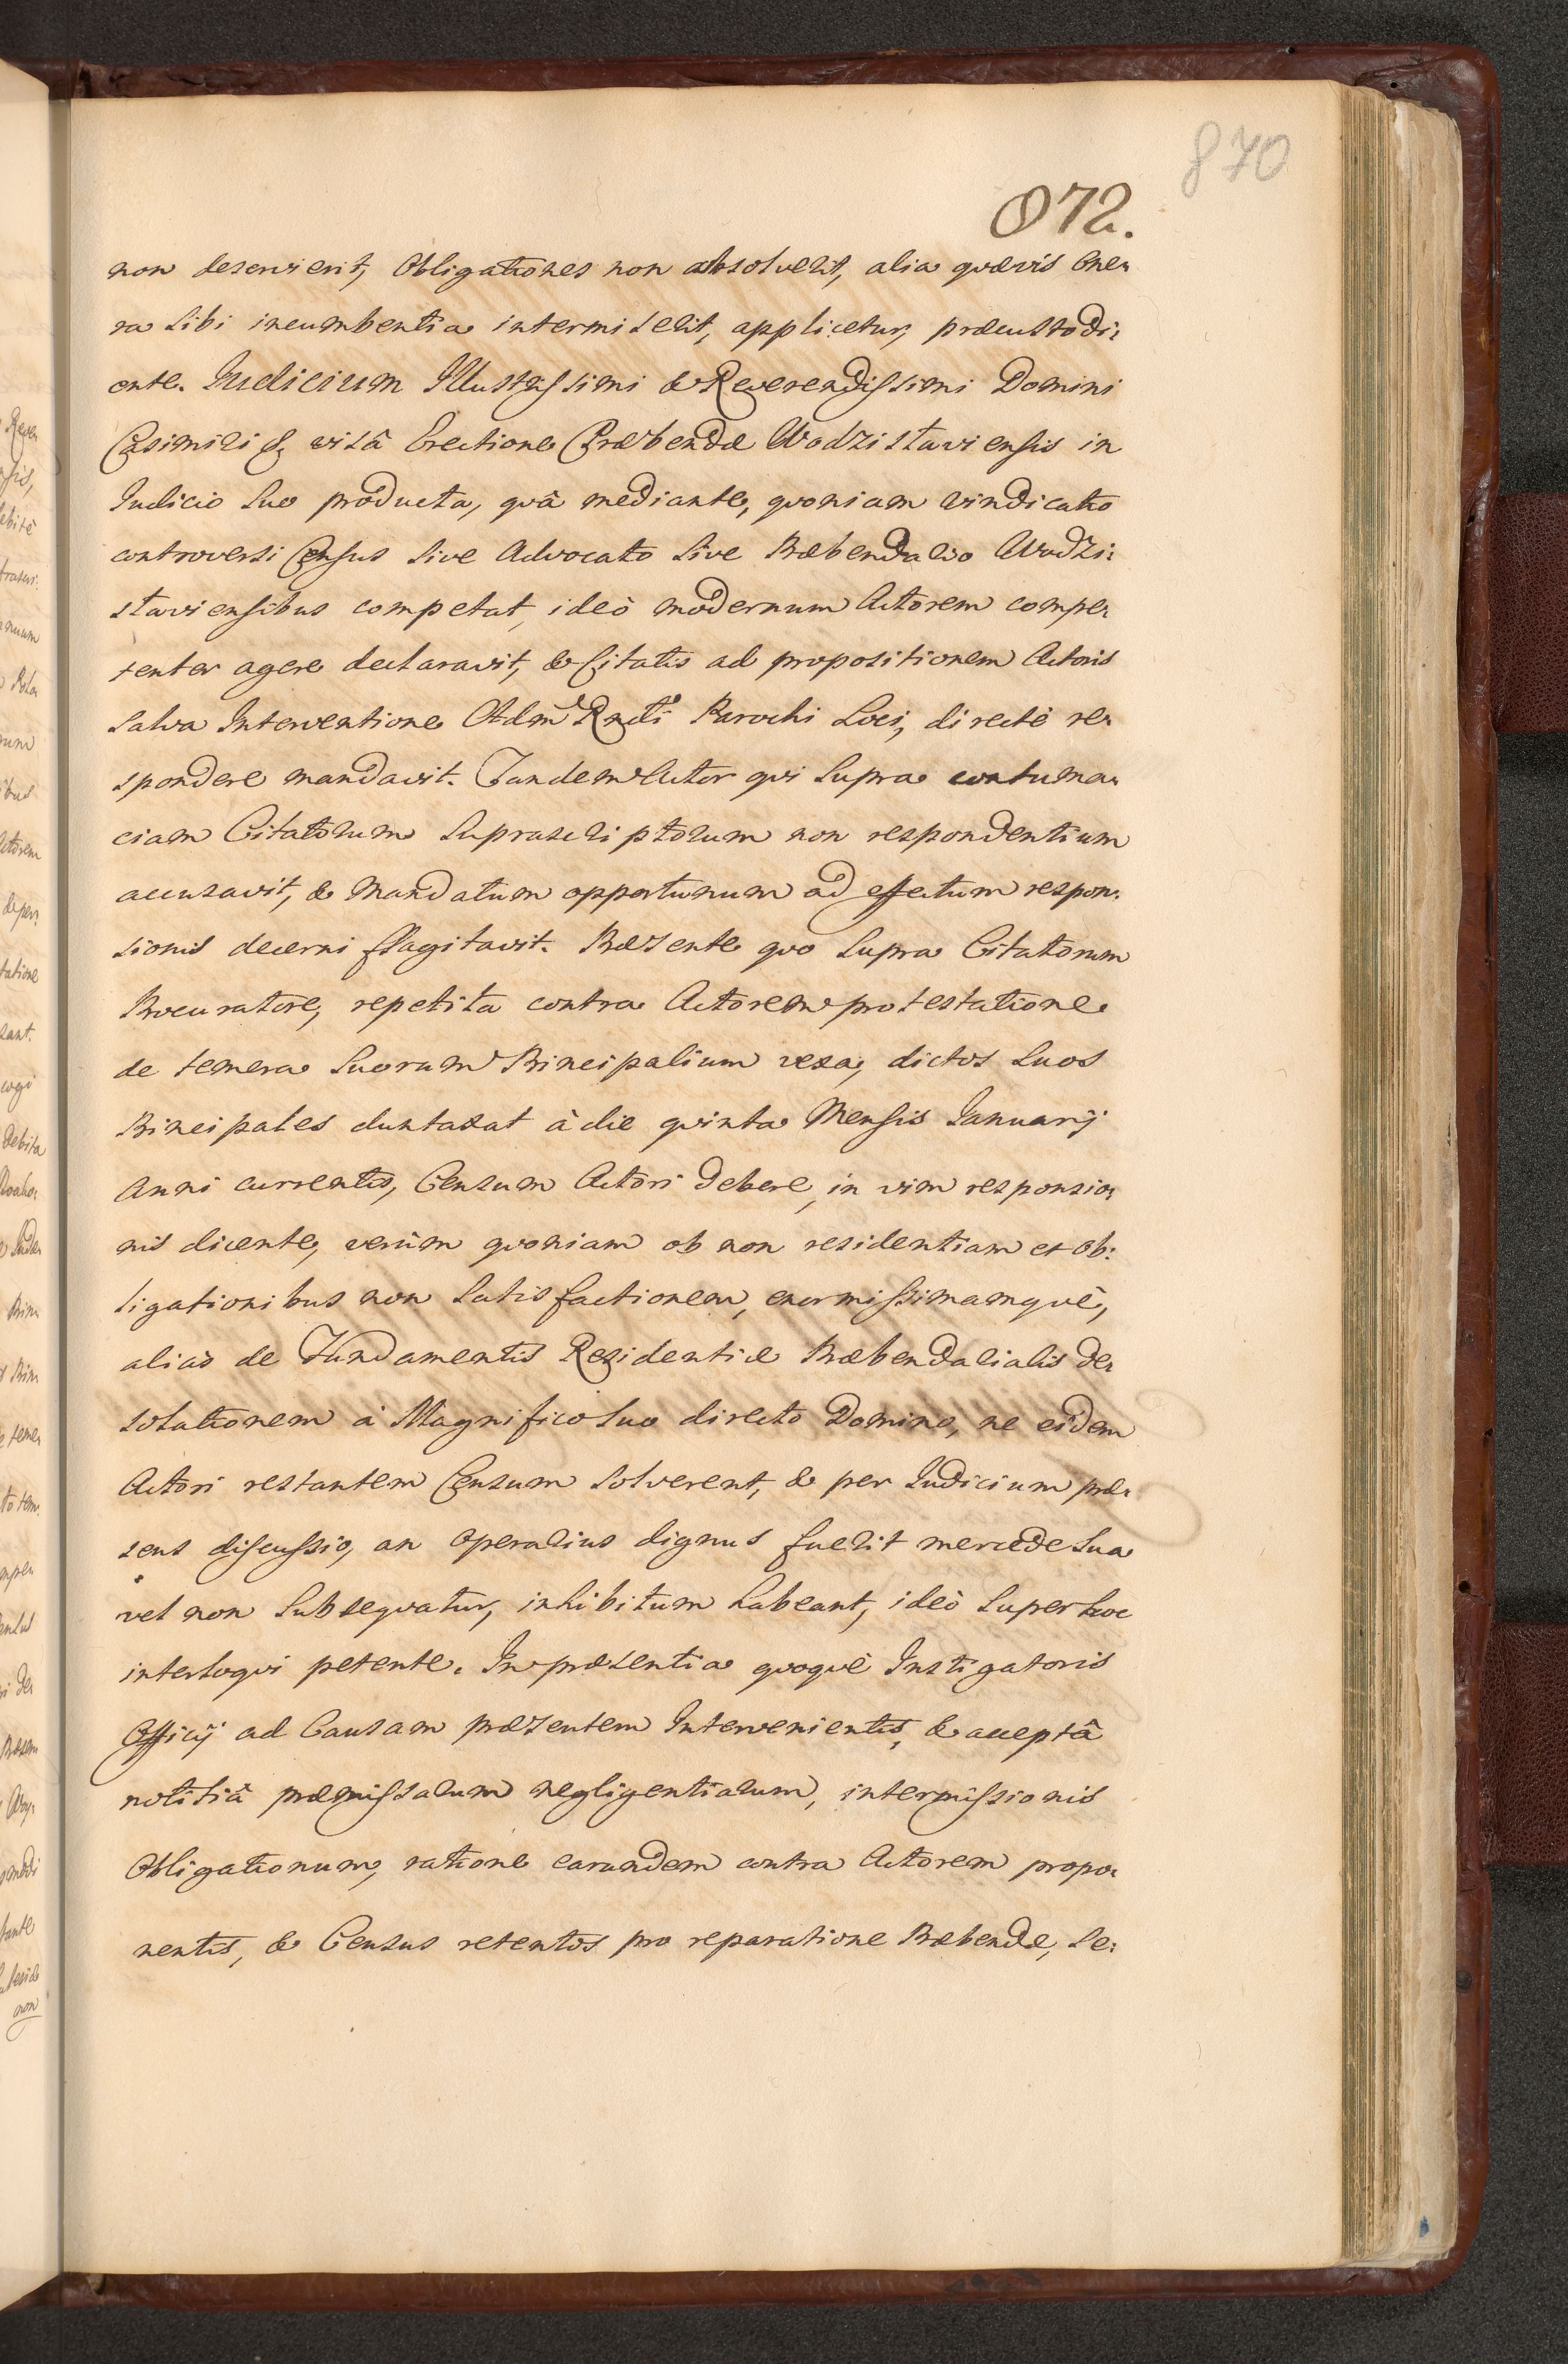 870
872.
non deservierit, Obligationes non absolverit, alia quævis One:
ra sibi incumbentia intermiserit, applicetur, præcustodi:
ente. Iudicium Illustrissimi & Reverendissimi Domini
Casimiri & visâ Erectione Præbendæ Wodzistaviensis in
Iudicio suo productâ, quâ mediante, quoniam vindicatio
controversi Census sive Advocato sive Præbendario Wodzi:
staviensibus competat, ideò modernum Actorem compe:
tenter agere declaravit, & Citatis ad propositionem Actoris
salva Interventione Adm Rndi Parochi Loci, directè re:
spondere mandavit. Tandem Actor qui supra contuma:
ciam Citatorum suprascriptorum non respondentium
accusavit, & Mandatum opportunum ad effectum respon:
sionis decerni flagitavit. Præsente quo supra Citatorum
Procuratore, repetita contra Actorem protestatione
de temera suorum Principalium vexa, dictos suos
Principales duntaxat à die quinta Mensis Ianuarij
Anni currentis, Censum Actori debere, in vim responsio:
nis dicente, verùm quoniam ob non residentiam et ob:
ligationibus non satisfactionem, enormissimamquè,
alias de Fundamentis Rezidentiæ Præbendarialis de:
solationem à Magnifico suo directo Domino, ne eidem
Actori restantem Censum solverent, & per Iudicium præ:
sens discussio, an operarius dignus fuerit mercede sua
vel non subsequatur, inhibitum habeant, ideò super hoc
interloqui petente. In præsentia quoquè Instigatoris
Officij ad Causam præsentem Intervenientis, & acceptâ
notitiâ præmissarum negligentiarum, intermissionis
Obligationum, ratione earundem contra Actorem propo:
nentis, & Census retentos pro reparatione Præbendæ, se: